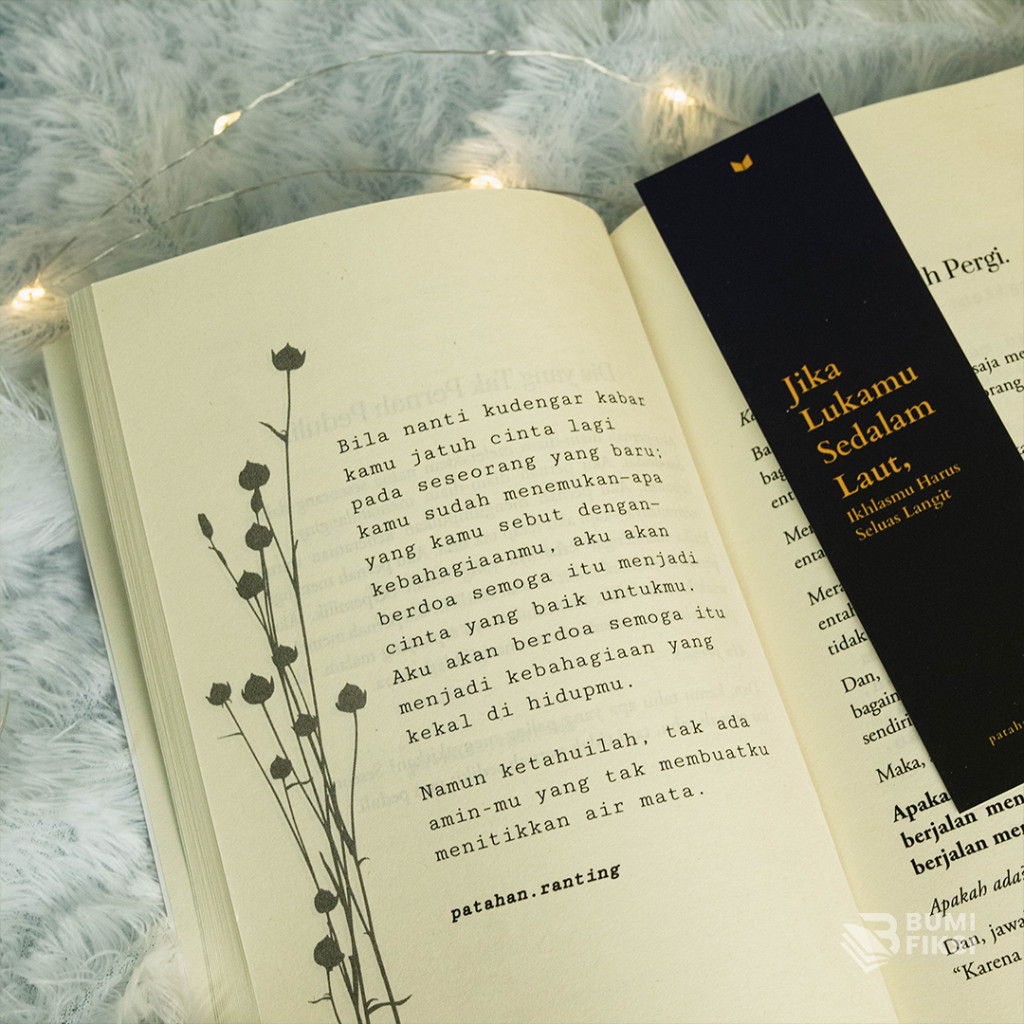 Bila nanti kudengar kabar
kamu jatuh cinta lagi
pada seseorang yang baru;
kamu sudah menemukan-apa
yang kamu sebut dengan-
kebahagiaanmu, aku akan
berdoa semoga itu menjadi
cinta yang baik untukmu.
Aku akan berdoa semoga itu
menjadi kebahagiaan yang
kekal di hidupmu.
Namun ketahuilah, tak ada
amin-mu yang tak membuatku
menitikkan air mata.
patahan.ranting
Jika
Lukamu
Sedalam
Laut,
Ikhlasmu Harus
Seluas Langit
Pergi.
saja
Dan,
sendiri
Maka,
berjalan
berjalan
Apakah ada
Dan,
“Karena
BUMI
FIKSI